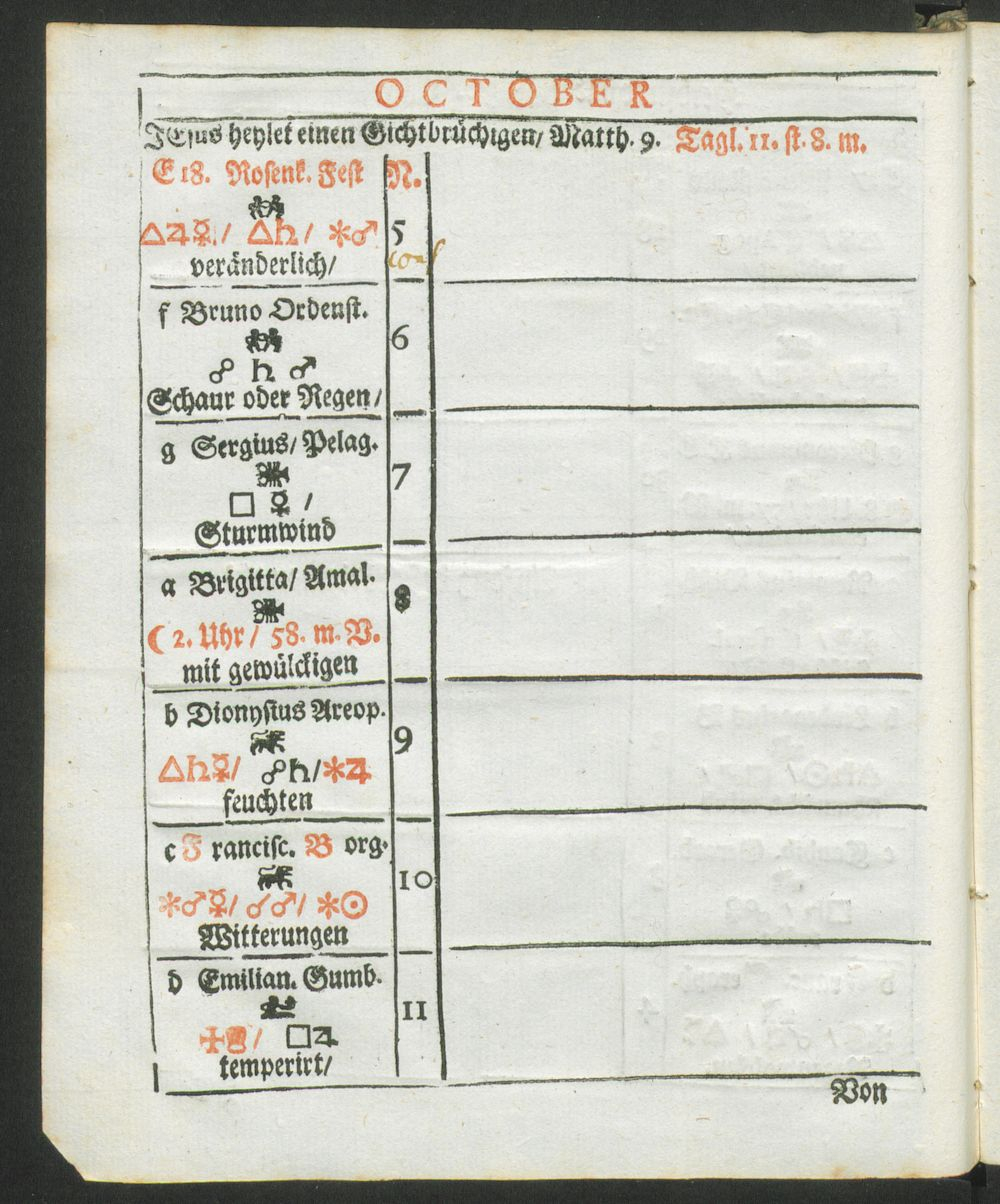 OCTOBER
JEsus heylet einen Gichtbrüchigen/ Matth. 9. Tagl. 11. st. 8. m.
E 18. Rosenk. Fest N.
△♃☿/ △♄/ ✱♂ 5
veränderlich/
f Bruno Ordenst.
6
☍ ♄ ♂
Schaur oder Regen/
g Sergius/ Pelag.
7
□ ☿ /
Sturmwind
a Brigitta/ Amal.
8
☾ 2. Uhr/ 58. m. V.
mit gewülckigen
b Dionysius Areop.
9
△♄☿/ ☍♄/✱♃
feuchten
c Francisc. Borg.
10
✱♂☿/ ☌♂/ ✱☉
Witterungen
d Emilian. Gumb.
11
□♃
temperirt/
Von